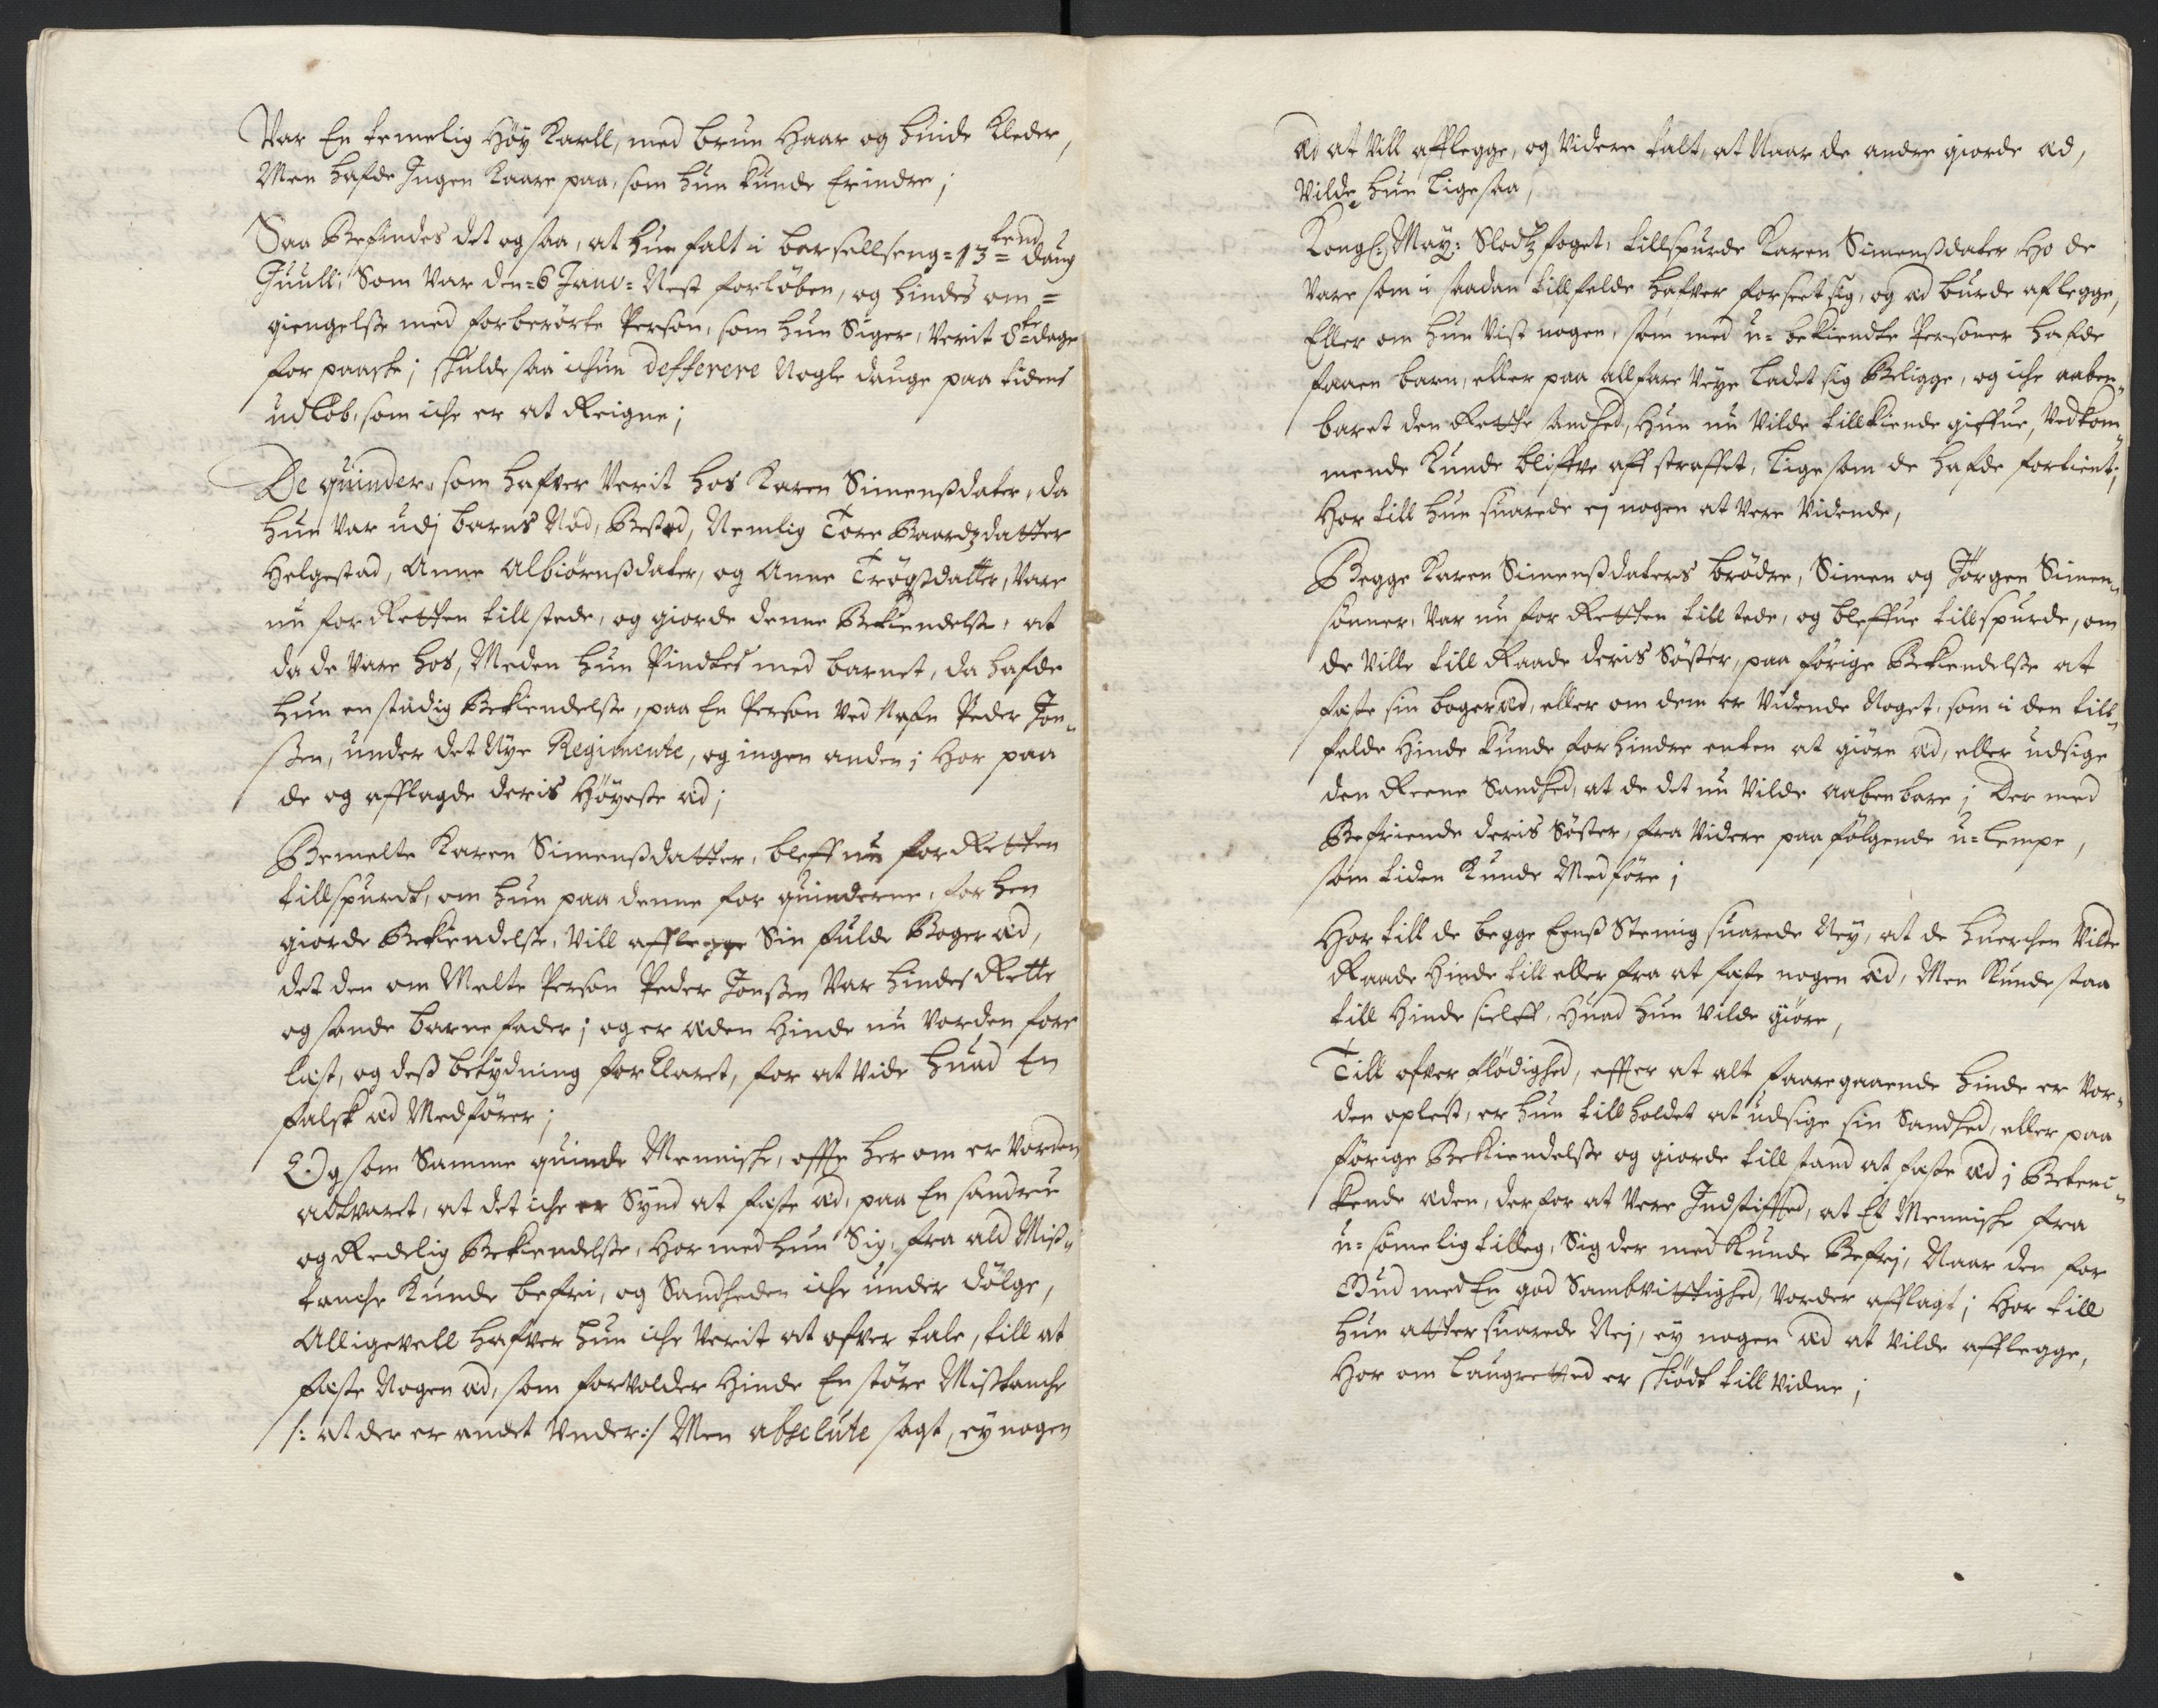 Var En temelig Høy Karll, med brun Haar og huide Kleder,
Men hafde Ingen Kaare paa, som hun kunde Erindre;
Saa Befindes det ogsaa, at hun falt i barsellseng = 13 tend = daug
Juulli Som Var den = 6 Janv = Nest forløben, og hindes om =
giengelse med forberørte Person, som hun Siger, Verit 8te dage
for paaske; skulde saa ichun defferere Nogle dauge paa tidens
udløb, som iche er at Reigne;
De quinder, som hafver Verit hos Karen Simenßdater, da
hun Var udj barns Nød, Bested, Nemlig Tore Baardzdatter
Helgestad, Anne Albiørnßdater, og Anne Trøgßdatter, Vare
nu for Retten till stede, og giorde denne Bekiendelse, at
da de Vare hos, Meden hun Pindtes med barnet, da hafde
hun en stadig Bekiendelse, paa En Person Ved Nafn Peder Jon„
ßen, under det Nye Regimente, og ingen anden; Hor paa
de og afflagde deris Høyeste æd;
Bemelte Karen Simenßdatter, bleff nu for Retten
tillspurdt, om hun paa denne for quinderne, forhen
giorde Bekiendelse, Vill afflegge Sin fulde Boger æd,
det den om Melte Person Peder Jonßen Var hindes Rette
og sande barnefader; og er æden Hinde nu Vorden fore
læst, og deß betydning forklaret, for at Vide huad En
falsk æd Medfører;
Og som Samme quinde Menniske, offte her om er Vorden
adtvaret, at det iche er Synd at faste æd, paa En sandru
og Redelig Bekiendelse, Hor med hun Sig, fra ald Miß„
tanche Kunde befri, og Sandheden iche under dølge,
Alligevell hafver hun iche Verit at ofver tale, till at
faste Nogen æd, som forvolder Hinde En støre Mißtanche
/: at der er andet Under :/ Men absolute sagt, ey nogen
æd at Vill afflegge, og Videre talt, at Naar de andre giorde æd,
Vilde hun ligesaa,
Kongl: May: Slodtz foget, tillspurde Karen Simenßdater Ho de
Vare som i saadan tillfelde hafver forseet sig, og æd burde aflegge,
Eller om hun Vist nogen, som med u=bekiendte Personer hafde
faaen barn, eller paa allfare Veye ladet sig Beligge, og iche aaben„
baret den Rette sandhed, Hun nu Vilde tillkiende giffue, Vedkom„
mende Kunde bliffve aff straffet, ligesom de hafde fortient;
Hor till hun suarede ej nogen at Vere Vidende,
Begge Karen Simenßdaters brødre, Simen og Jørgen Simen„
sønner, Var nu for Retten till stede, og bleffue tillspurde, om
de Ville till Raade deris Søster, paa førige Bekiendelse at
faste sin boger æd, eller om dem er Vidende Noget, som i den till„
felde Hinde kunde forhindre enten at giøre æd, eller udsige
den Reene Sandhed, at de det nu Vilde aabenbare; Der med
Befriende deris Søster, fra Videre paafølgende u=lempe,
som tiden Kunde Medføre;
Hor till de begge Eenß Stemig suarede Ney, at de huerchen Vilde
Raade Hinde till eller fra at faste nogen æd, Men Kunde staa
till Hinde sielff, Huad hun Vilde giøre,
Till ofver flødighed, effter at alt faaregaaende hinde er Vor„
den oplest, er hun till holdet at udsige sin Sandhed, eller paa
førige Bekiendelse og giorde till stand at faste æd; Beten„
kende æden, derfor at Vere Indstifted, at Et Menniske fra
u=sømelig tilleg, Sig der med Kunde Befrj, Naar den for
Gud med En god Sambvittighed, Vorder afflagt; Hor till
hun atter suarede Nej, ey nogen æd at Vilde afflegge,
Hor om Laugretted er skiødt till Vidne;